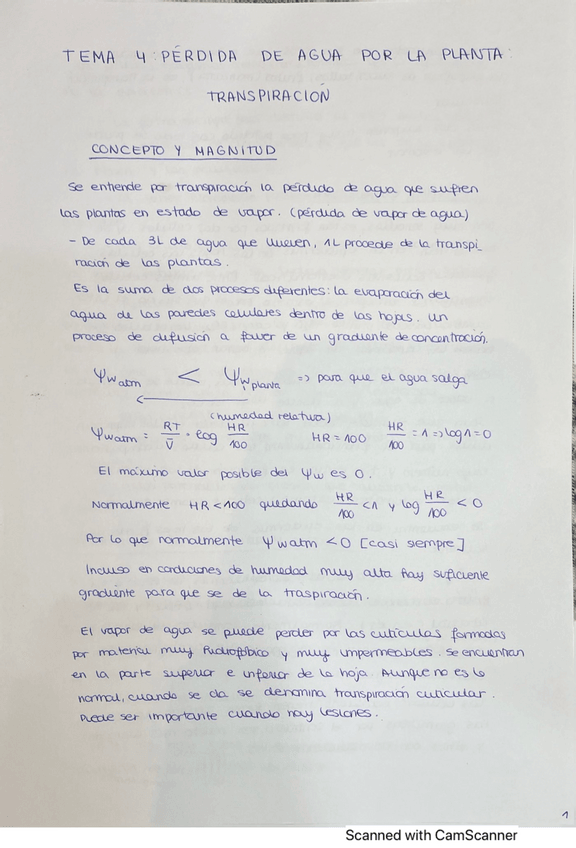 TEMA 4: PÉRDIDA DE AGUA POR LA PLANTA:
TRANSPIRACIÓN
CONCEPTO Y MAGNITUD
Se entiende por transpiración la pérdida de agua que sufren
las plantas en estado de vapor. (pérdida de vapor de agua)
- De cada 3L de agua que llueven, 1L procede de la transpi_
ración de las plantas.
Es la suma de dos procesos diferentes: la evaporación del
agua de las paredes celulares dentro de las hojas. un
proceso de difusión a favor de un gradiente de concentración.
Ψw atm < Ψw planta => para que el agua salga
(humedad relativa)
Ψw atm = RT/V̄ · log HR/100 HR = 100 HR/100 = 1 => log 1 = 0
El máximo valor posible del Ψw es 0.
Normalmente HR < 100 quedando HR/100 < 1 y log HR/100 < 0
Por lo que normalmente Ψw atm < 0 [casi siempre]
Incluso en condiciones de humedad muy alta hay suficiente
gradiente para que se de la traspiración.
El vapor de agua se puede perder por las cutículas formadas
por material muy hidrofóbico y muy impermeables. Se encuentran
en la parte superior e inferior de la hoja. Aunque no es lo
normal, cuando se da se denomina transpiración cuticular.
Puede ser importante cuando hay lesiones.
1
Scanned with CamScanner